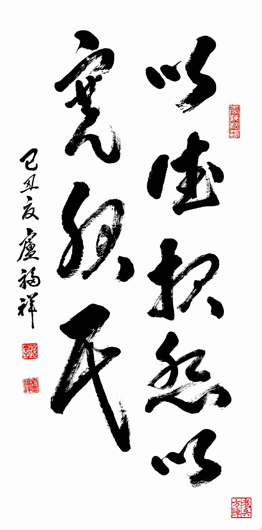 以德报怨以
宽服民
己丑夏盧福祥